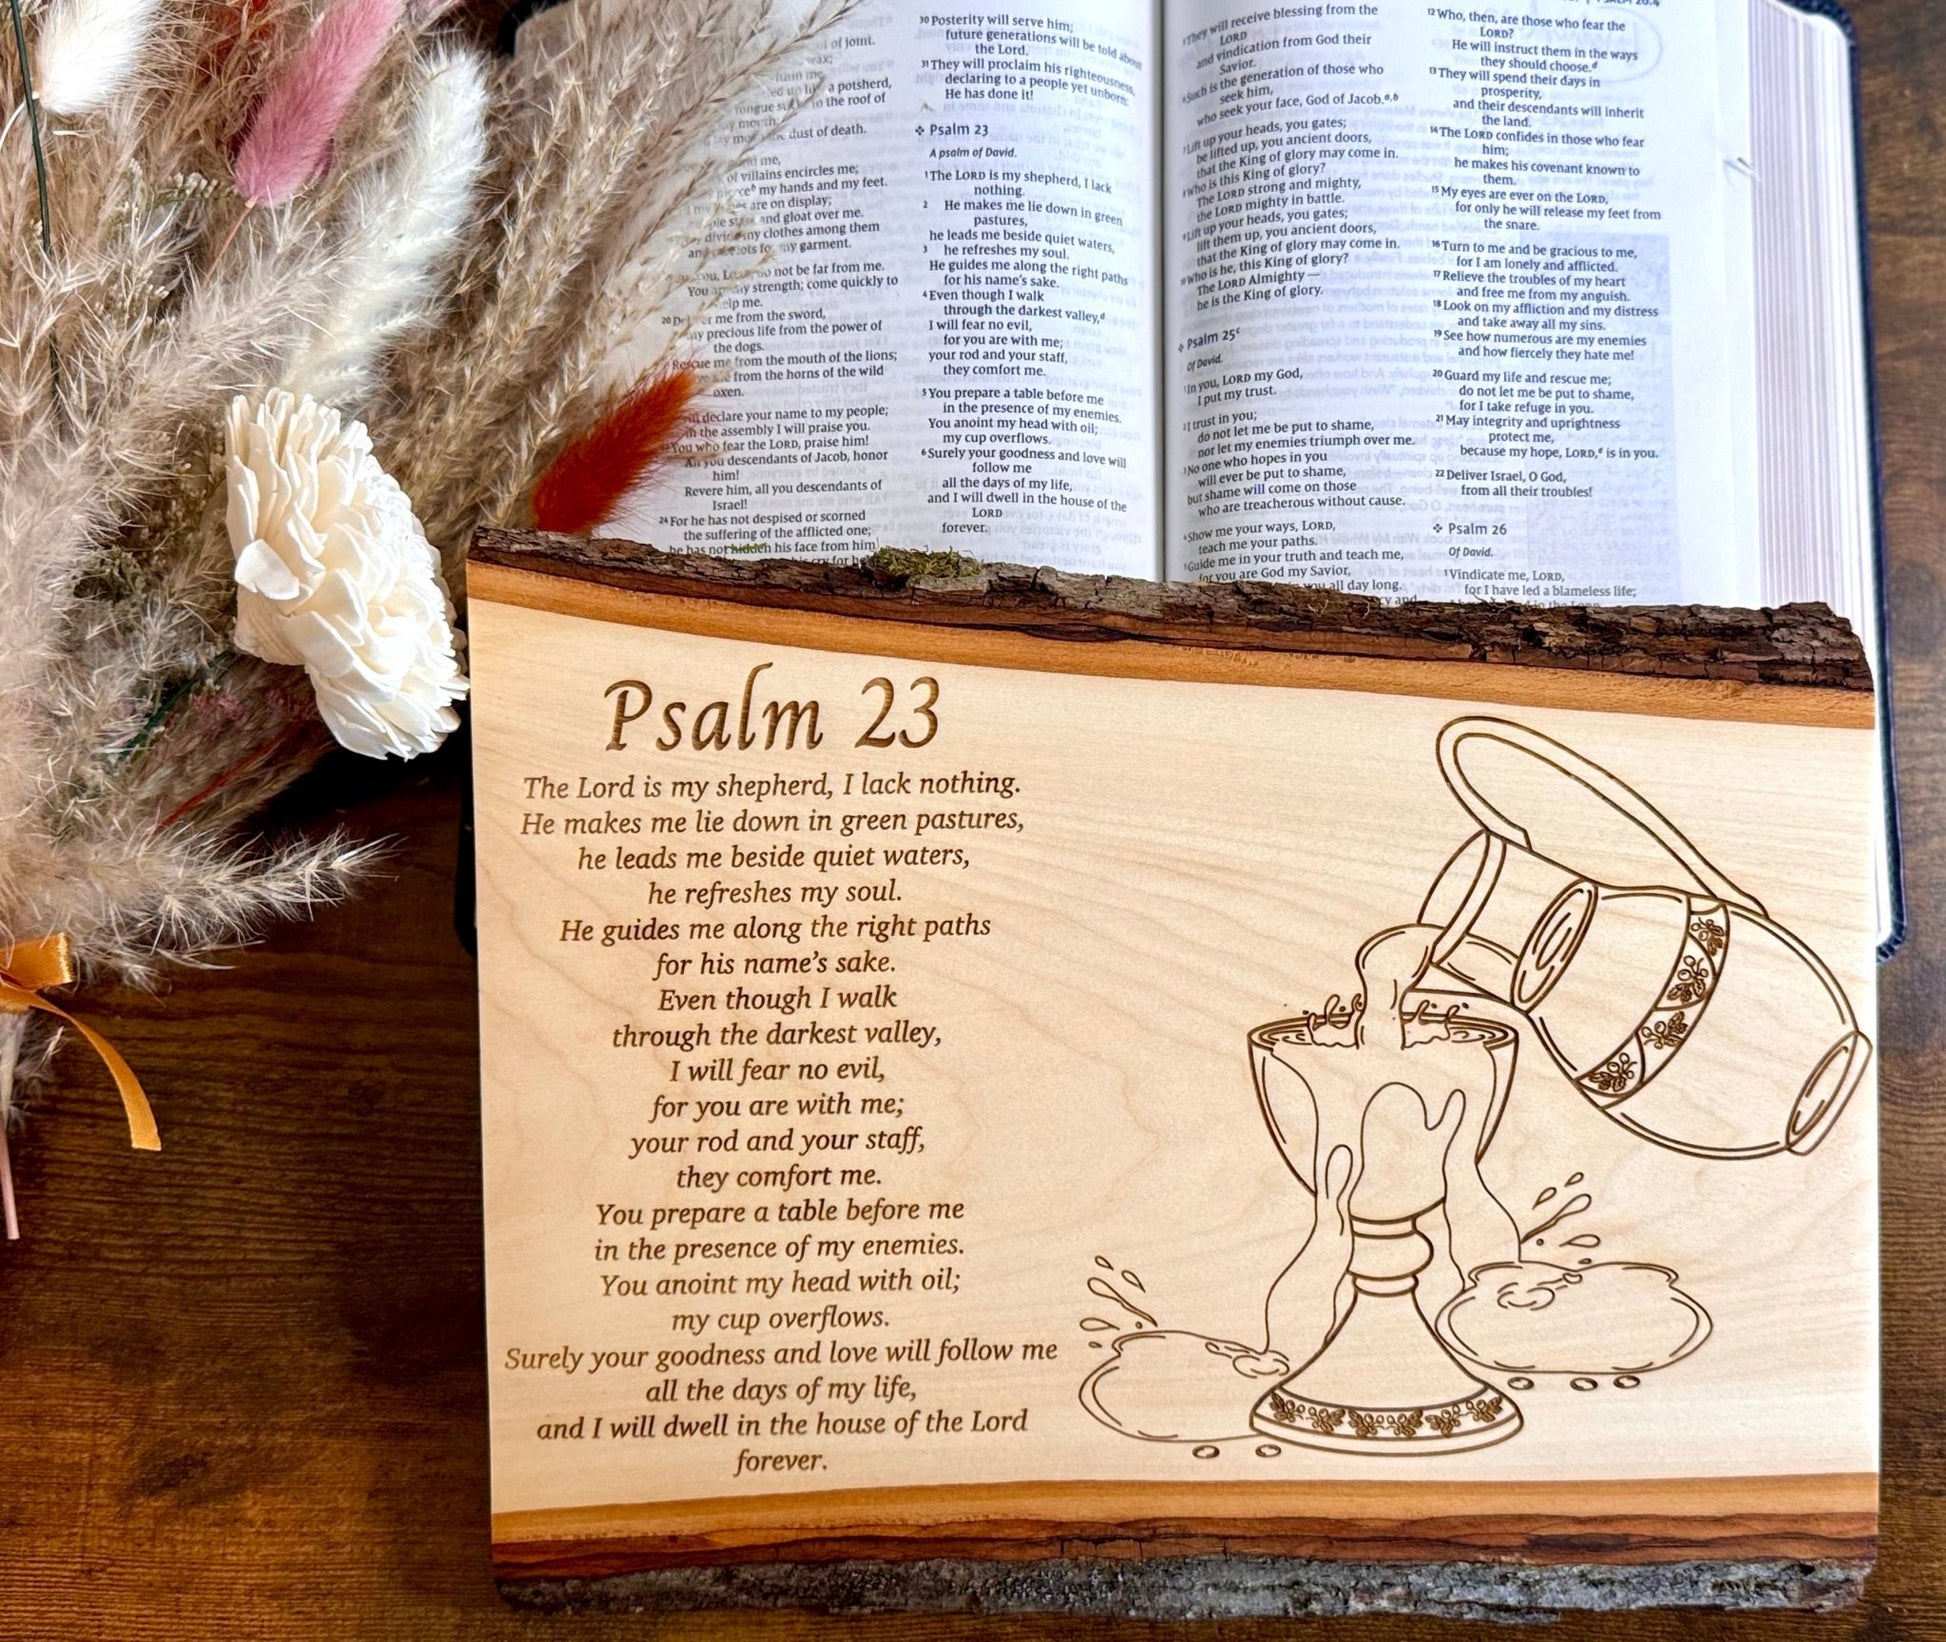 of joint.
wax;
a potsherd,
to the roof of
dust of death.
of villains encircles me;
my hands and my feet.
are on display;
and gloat over me.
my clothes among them
my garment.
not be far from me.
You my strength; come quickly to
help me.
20 me from the sword,
my precious life from the power of
the dogs.
Rescue me from the mouth of the lions;
me from the horns of the wild
oxen.
declare your name to my people;
in the assembly I will praise you.
You who fear the LORD, praise him!
All you descendants of Jacob, honor
him!
Revere him, all you descendants of
Israel!
24 For he has not despised or scorned
the suffering of the afflicted one;
he has not hidden his face from him
cry for
30 Posterity will serve him;
future generations will be told about
the Lord.
31 They will proclaim his righteousness,
declaring to a people yet unborn:
He has done it!
Psalm 23
A psalm of David.
1 The LORD is my shepherd, I lack
nothing.
2 He makes me lie down in green
pastures,
he leads me beside quiet waters,
3 he refreshes my soul.
He guides me along the right paths
for his name's sake.
4 Even though I walk
through the darkest valley,d
I will fear no evil,
for you are with me;
your rod and your staff,
they comfort me.
5 You prepare a table before me
in the presence of my enemies.
You anoint my head with oil;
my cup overflows.
6 Surely your goodness and love will
follow me
all the days of my life,
and I will dwell in the house of the
LORD
forever.
5 They will receive blessing from the
LORD
and vindication from God their
Savior.
6 Such is the generation of those who
seek him,
who seek your face, God of Jacob.a,b
7 Lift up your heads, you gates;
be lifted up, you ancient doors,
that the King of glory may come in.
8 Who is this King of glory?
The LORD strong and mighty,
the LORD mighty in battle.
9 Lift up your heads, you gates;
lift them up, you ancient doors,
that the King of glory may come in.
10 Who is he, this King of glory?
The LORD Almighty —
he is the King of glory.
Psalm 25c
Of David.
1 In you, LORD my God,
I put my trust.
2 I trust in you;
do not let me be put to shame,
nor let my enemies triumph over me.
3 No one who hopes in you
will ever be put to shame,
but shame will come on those
who are treacherous without cause.
4 Show me your ways, LORD,
teach me your paths.
5 Guide me in your truth and teach me,
for you are God my Savior,
you all day long.
12 Who, then, are those who fear the
LORD?
He will instruct them in the ways
they should choose.d
13 They will spend their days in
prosperity,
and their descendants will inherit
the land.
14 The LORD confides in those who fear
him;
he makes his covenant known to
them.
15 My eyes are ever on the LORD,
for only he will release my feet from
the snare.
16 Turn to me and be gracious to me,
for I am lonely and afflicted.
17 Relieve the troubles of my heart
and free me from my anguish.
18 Look on my affliction and my distress
and take away all my sins.
19 See how numerous are my enemies
and how fiercely they hate me!
20 Guard my life and rescue me;
do not let me be put to shame,
for I take refuge in you.
21 May integrity and uprightness
protect me,
because my hope, LORD,e is in you.
22 Deliver Israel, O God,
from all their troubles!
Psalm 26
Of David.
1 Vindicate me, LORD,
for I have led a blameless life;
Psalm 23
The Lord is my shepherd, I lack nothing.
He makes me lie down in green pastures,
he leads me beside quiet waters,
he refreshes my soul.
He guides me along the right paths
for his name’s sake.
Even though I walk
through the darkest valley,
I will fear no evil,
for you are with me;
your rod and your staff,
they comfort me.
You prepare a table before me
in the presence of my enemies.
You anoint my head with oil;
my cup overflows.
Surely your goodness and love will follow me
all the days of my life,
and I will dwell in the house of the Lord
forever.